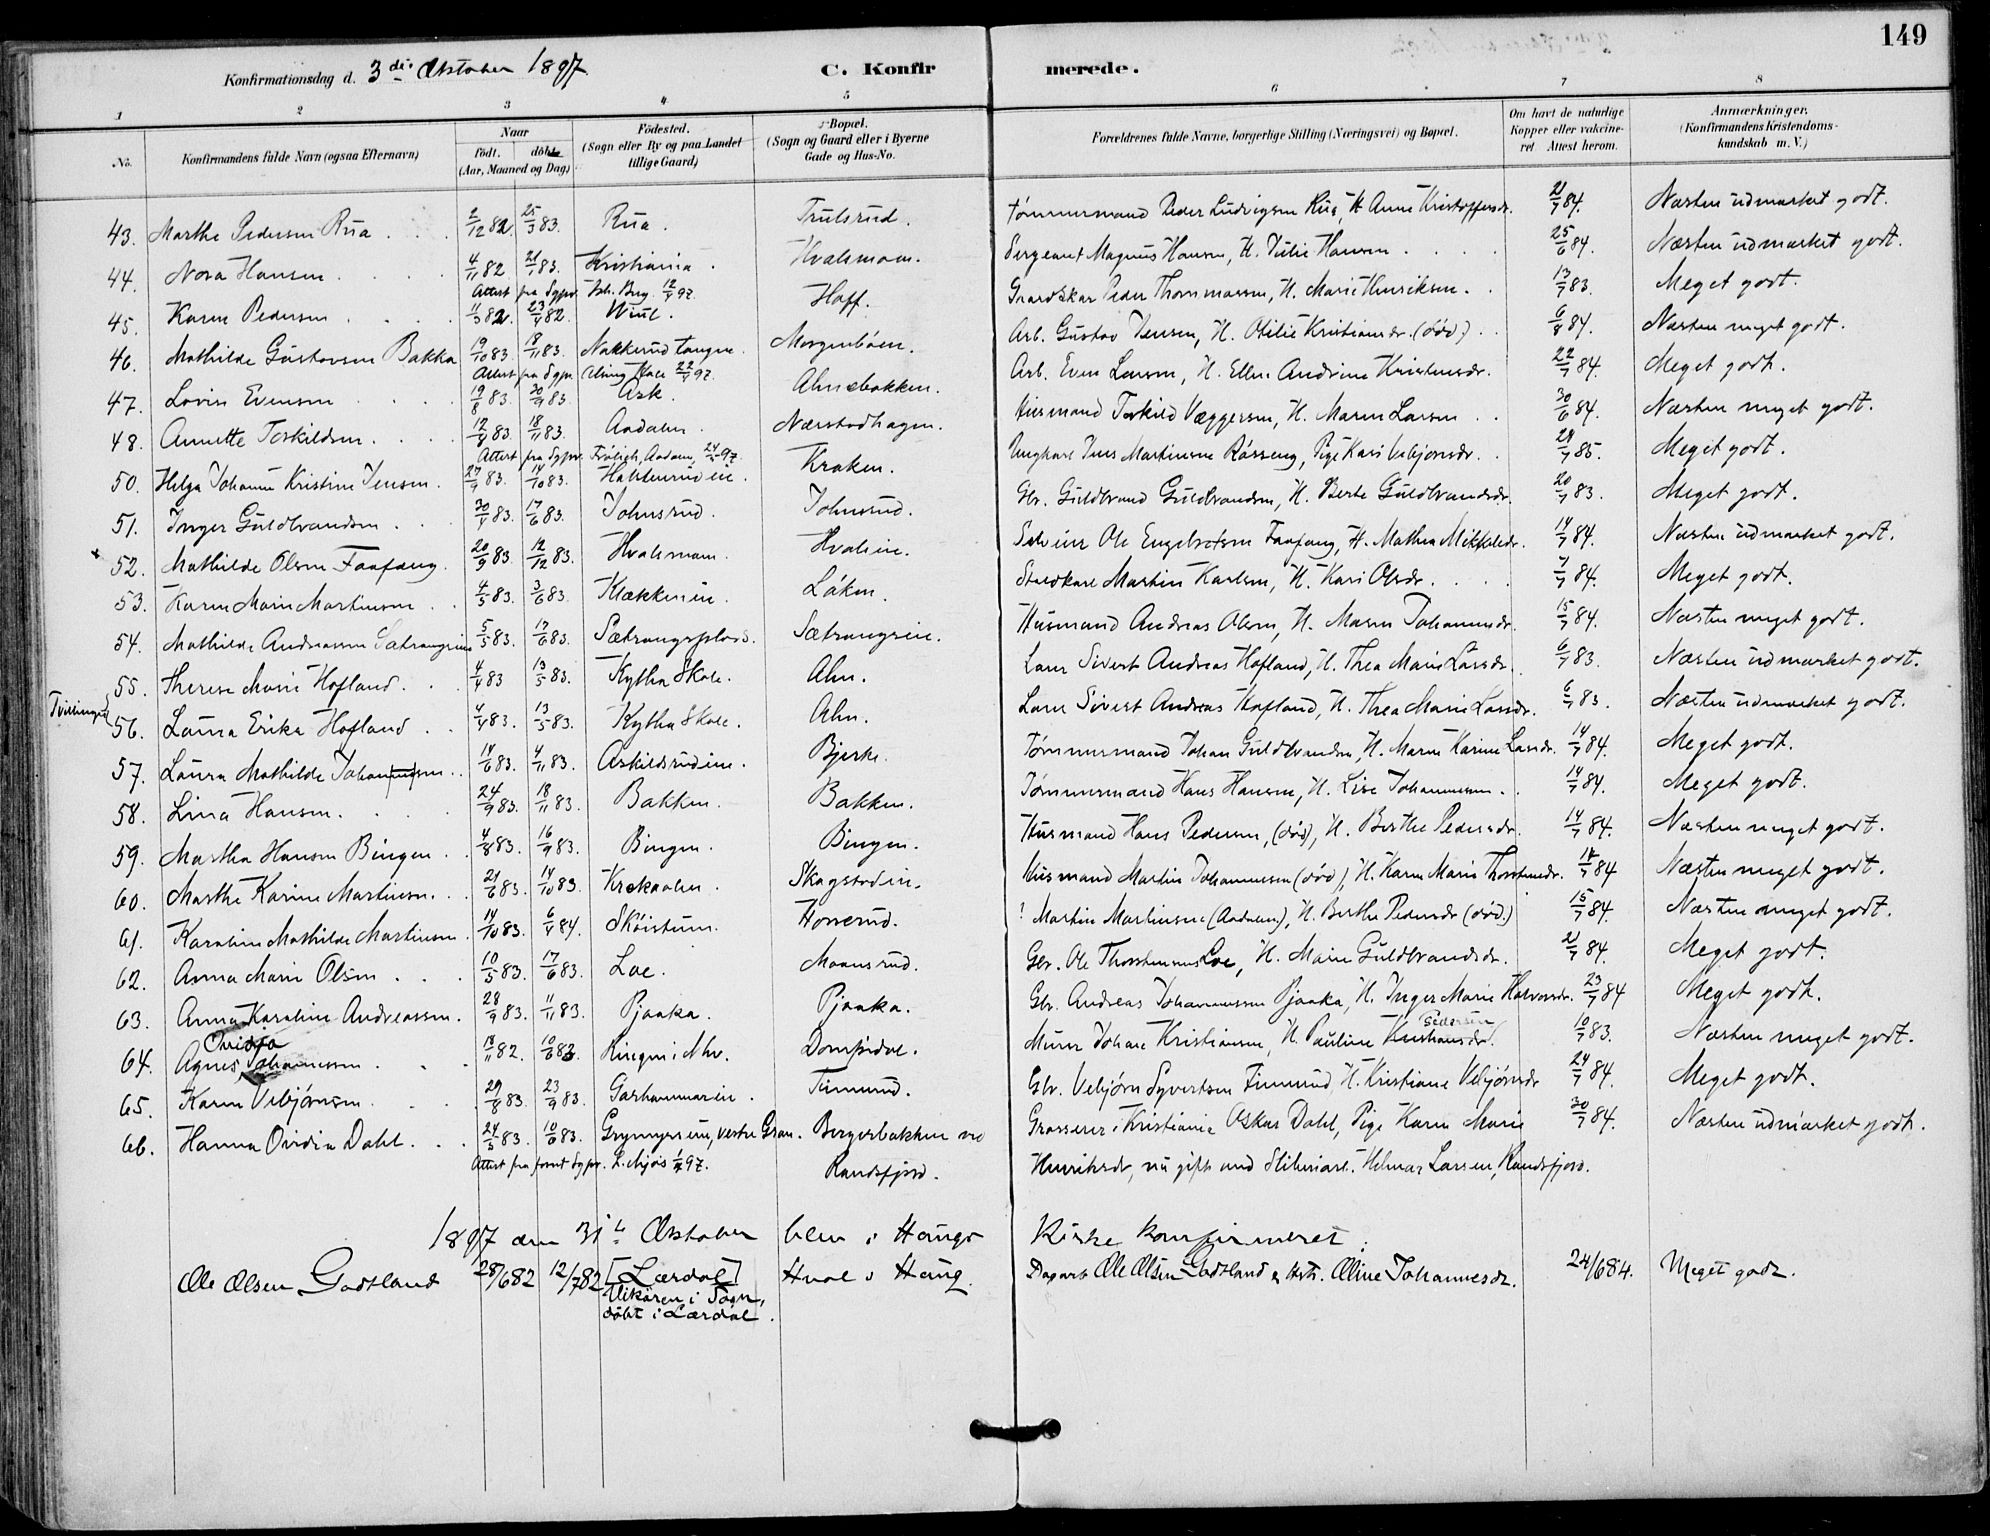 149
Konfirmationsdag d. 3die Oktober 1897. C. Konfirmerede.
1 2 3 4 5 6 7 8
No. Konfirmandens fulde Navn (ogsaa Efternavn) Naar födt. döbt. (Aar, Maaned og Dag) Födested. (Sogn eller By og paa Landet tillige Gaard) Bopæl. (Sogn og Gaard eller i Byerne Gade og Hus-No. Forældrenes fulde Navne, borgerlige Stilling (Næringsvei) og Bopæl. Om havt de naturlige Kopper eller vakcineret Attest herom. Anmærkninger. (Konfirmandens Kristendomskundskab m. V.)
43. Marthe Pedersen Rua 2/12 82. 25/3 83. Rua. Trulsrud. Tømmermand Peder Ludvigsen Rua, H. Anne Kristoffersdr. 21/7 84. Næsten udmærket godt.
44. Nora Hansen 4/11 82 21/1 83. Kristiania. Hvalsmoen. Sergeant Magnus Hansen, H. Julie Hansen 25/6 84. Næsten udmærket godt.
Attest fra Sgpr. 12/4 97.
45. Karen Pedersen 11/3 82. 23/4 82. Wiul. Hoff. Gaardskar Peder Thommassen, H. Marie Henriksen. 13/7 83. Meget godt.
46. Mathilde Gustavsen Bakka 19/10 83. 18/11 83. Nakkerud tangen. Morgenbøen. Arb. Gustav Jensen, H. Otilie Kristiansdr. (død.) 6/8 84. Næsten meget godt.
Attest fra Sgpr. 22/4 97.
47. Lovise Evensen 19/8 83. 30/9 83. Ask. Almebakken. Arb. Even Larsen, H. Ellen Andrine Kristensdr. 22/7 84. Meget godt.
48. Annette Torkildsen. 12/4 83. 18/11 83. Aadalen. Nærstadhagen. Husmand Torkild Væggersen, H. Maren Larsen 30/6 84. Næsten meget godt.
Attest fra Sgpr. Frölich, Aadalen, 24/4 97.
50. Helga Johanne Kristine Jensen. 27/7 83. 14/10 83. Halstenrudeie. Kroken. Ungkarl Jens Martinsen Røsseng, Pige Kari Vebjørnsdr. 29/7 85. Meget godt.
51. Inger Guldbrandsen 30/4 83. 17/6 83. Johnsrud. Johnsrud. Gbr. Guldbrand Guldbrandsen, H. Berte Guldbrandsdr. 20/7 83. Meget godt.
52. Mathilde Olsen Faafæng. 20/9 83. 12/12 83. Hvalsmoen. Hvalseie. Selveier Ole Engebretsen Faafæng, H. Mathea Mikkelsdr. 14/7 84. Næsten udmærket godt.
53. Karen Marie Martinsen 4/5 83. 3/6 83. Klækkeneie. Løken. Staldkarl Martin Karlsen, H. Kari Olsdr. 7/7 84. Meget godt.
54. Mathilde Andreassen Sætrangeie 5/5 83. 17/6 83. Sætrangsplads. Sætrangseie. Husmand Andreas Olsen, H. Maren Johannesdr. 15/7 84. Næsten meget godt.
Tvillinger
55. Therese Marie Hofland. 4/4 83 13/5 83. Kytha Skole. Alm. Lærer Sivert Andreas Hofland, H. Thea Marie Larsdr. 6/7 83. Næsten udmærket godt.
56. Laura Erika Hofland 4/4 83. 13/5 83. Kytha Skole. Alm. Lærer Sivert Andreas Hofland, H. Thea Marie Larsdr. 6/7 83. Næsten udmærket godt.
57. Laura Mathilde Johansen. 14/6 83. 4/11 83. Askildsrudeie. Bjerke. Tømmermand Johan Guldbrandsen, H. Maren Karine Larsdr. 14/7 84. Meget godt.
58. Lina Hansen. 24/9 83. 18/11 83. Bakken. Bakken. Tømmermand Hans Hansen, H. Lise Johannesen. 14/7 84. Meget godt.
59. Martha Hansen Bingen. 4/8 83. 16/9 83. Bingen. Bingen. Husmand Hans Pedersen, (død), H. Berthe Pedersdr. 14/7 84. Næsten meget godt.
60. Marthe Karine Martinsen. 21/6 83. 14/10 83. Krokaalen. Skagstadeie. Husmand Martin Johannessen (død), H. Karen Marie Thorstensdr. 14/7 84 Næsten meget godt.
61. Karoline Mathilde Martinsen. 14/10 83. 6/4 84. Skøistuen. Honerud. ! Martin Martinsen (Aadalen), H. Berthe Pedersdr (død.) 15/7 84. Næsten meget godt.
62. Anna Marie Olsen 10/5 83. 17/6 83. Loe. Moensrud. Gbr. Ole Thorstensens Loe, H. Marie Guldbrandsdr. 21/7 84. Meget godt.
63. Anna Karoline Andreassen. 28/9 83. 11/11 83. Pjaaka. Pjaaka. Gbr. Andreas Johannessen Pjaaka, H. Inger Marie Halvorsdr. 23/7 84 Meget godt.
64. Agnes Ovidia Johannessen 18/11 82. 10/6 83. Ringeri i Nhv. Muren Johan Kristiansen, H. Pauline Kristiansdr. Pedersen 10/7 83. Næsten meget godt.
65. Karen Vebjørnsen 29/8 83. 23/9 83. Garhammereie. Finnerud. Gbr. Vebjørn Syvertsen Finnerud H. Kristiane Vebjørnsdr 24/7 84. Meget godt.
66. Hanna Ovidia Dahl. 24/3 83. 10/6 83. Grymyreie, vestre Gran. Bergersbakken ved Randsfjord. Grosserer i Kristiania Oskar Dahl, Pige Karen Marie Henriksdr, nu gift med Sliberiarb. Helmar Larsen, Randsfjord. 30/7 84. Næsten udmærket godt.
Attest fra forret Sgpr. 1/4 97.
1897 den 31te Oktober blev i Haugs Kirke konfirmeret:
Ole Olsen Godtland 28/6 82 12/7 82 [Lærdal] Vikören i Sogn, döbt i Lærdal. Hval i Haug. Dagarb Ole Olsen Godtland & Hstr. Oline Johannesdr. 24/6 84. Meget godt.